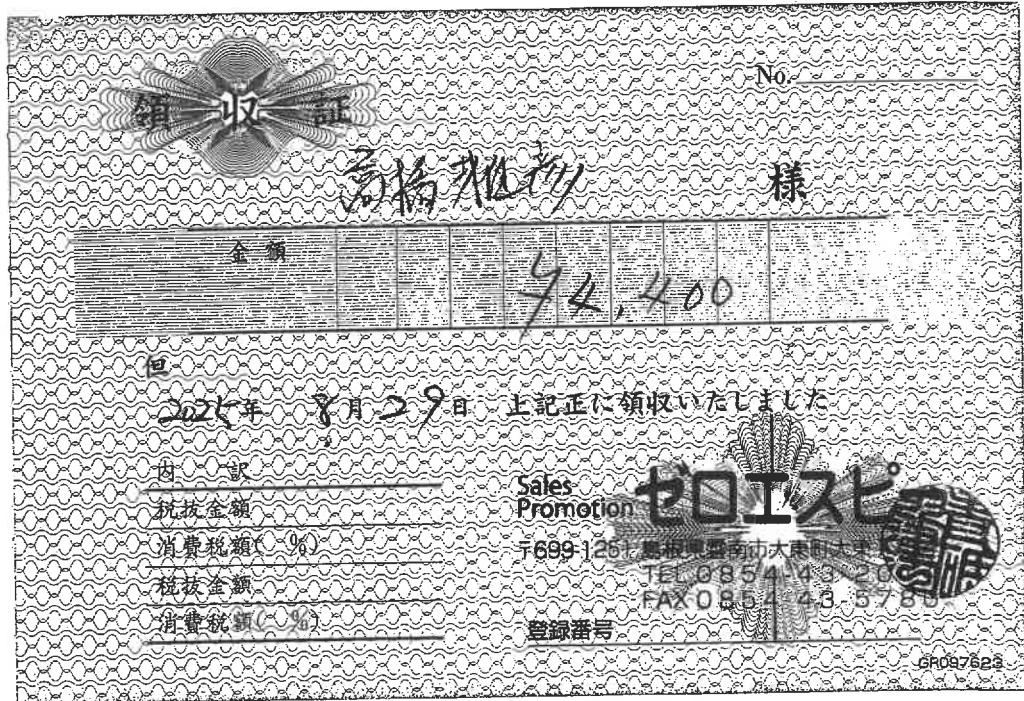 No.
領収証
高橋雅彰 様
金額
¥4,400
但
2025年 8月29日 上記正に領収いたしました
内訳
税抜金額
消費税額( %)
税抜金額
消費税額( %)
Sales
Promotion
ゼロエスピー
〒699-1251 島根県雲南市大東町大東
TEL 0854-43-20
FAX 0854-43-5780
登録番号
GR097623